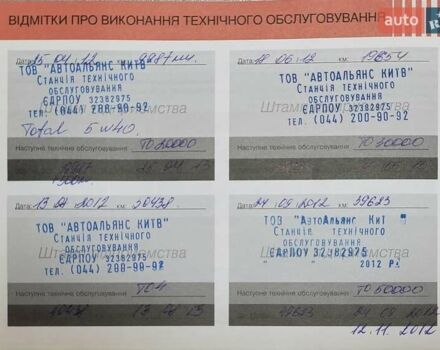 ВІДМІТКИ ПРО ВИКОНАННЯ ТЕХНІЧНОГО ОБСЛУГОВУВАННЯ
auto
Дата: 15 04 12
ТОВ "АВТОАЛЬЯНС КИЇВ"
Станція технічного
обслуговування
ЄДРПОУ 32382975
тел. (044) 200-90-92
Total 5w40
Наступне технічне обслуговування ТО 20000
Дата: 18 06 12 км: 19854
ТОВ "АВТОАЛЬЯНС КИЇВ"
Станція технічного
обслуговування
ЄДРПОУ 32382975
тел. (044) 200-90-92
Наступне технічне обслуговування ТО 30000
Дата: 2012 км: 30438
ТОВ "АВТОАЛЬЯНС КИЇВ"
Станція технічного
обслуговування
ЄДРПОУ 32382975
тел. (044) 200-90-92
Наступне технічне обслуговування ТО4
30438 13 08 13
Дата: 24 09 2012 км: 39623
ТОВ "АвтоАльянс Киї
Станція технічного
обслуговування
ЄДРПОУ 32382975
2012 р.
Наступне технічне обслуговування ТО 50000
49623 24 09 2012
12.11.2012